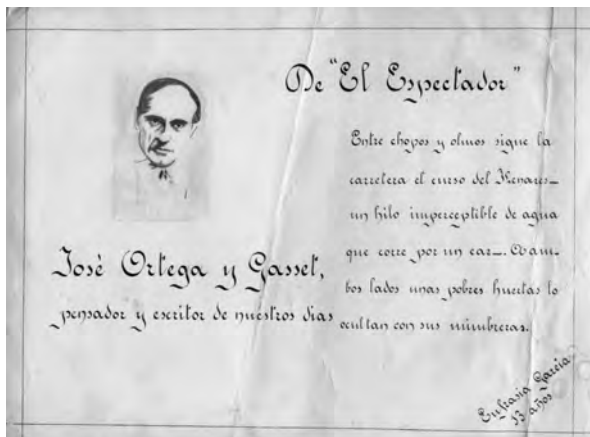 De "El Espectador"
Entre chopos y olmos sigue la
carretera el curso del Henares—
un hilo imperceptible de agua
que corre por un car—. A am-
bos lados unas pobres huertas lo
ocultan con sus mimbreras.
José Ortega y Gasset,
pensador y escritor de nuestros dias
Eufrasia García
13 años